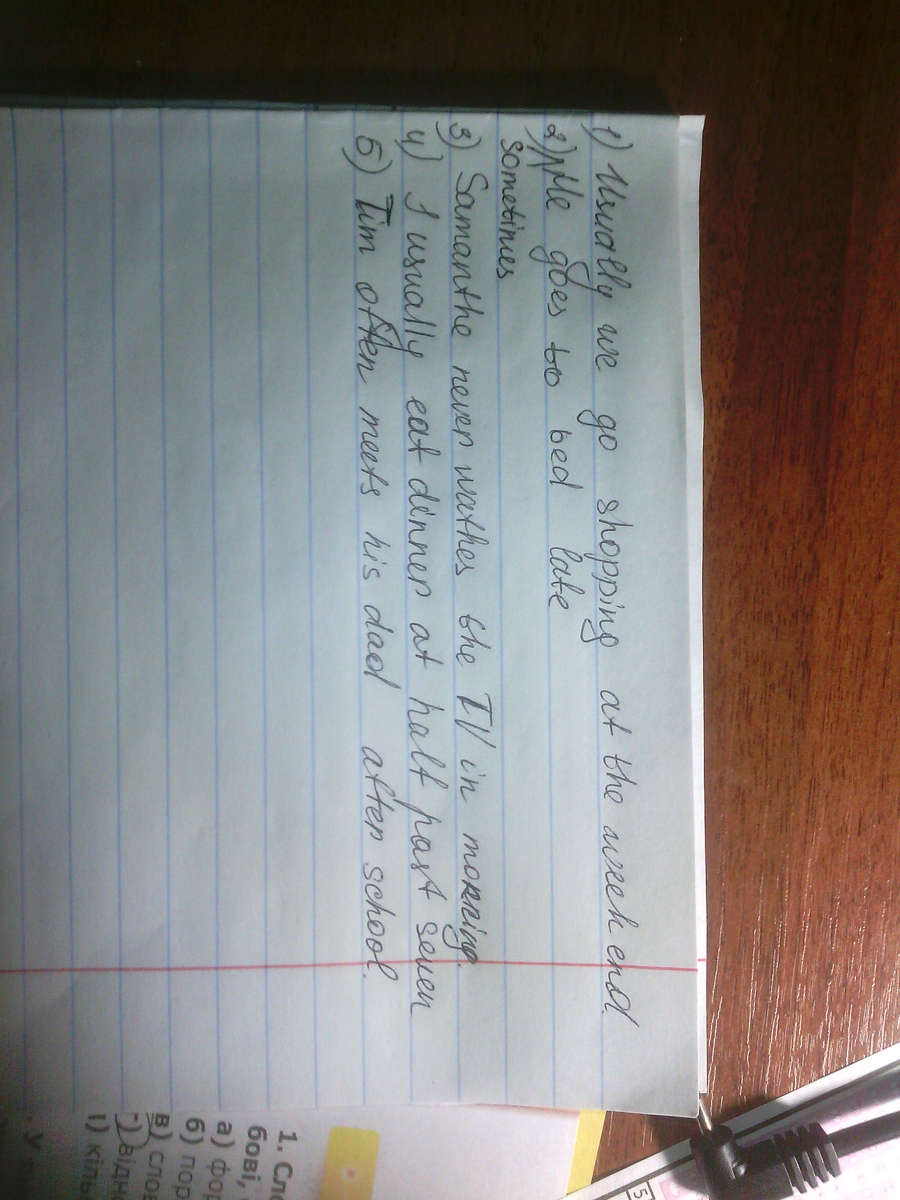 1) Usually we go shopping at the week end.
2) He goes to bed late
sometimes
3) Samanthe never wathes the TV in morning.
4) I usually eat dinner at half past seven
5) Tim often meets his dad after school.
1. Сло
бові,
а) фор
б) пор
в) сло
г) відн
і) кіль
5